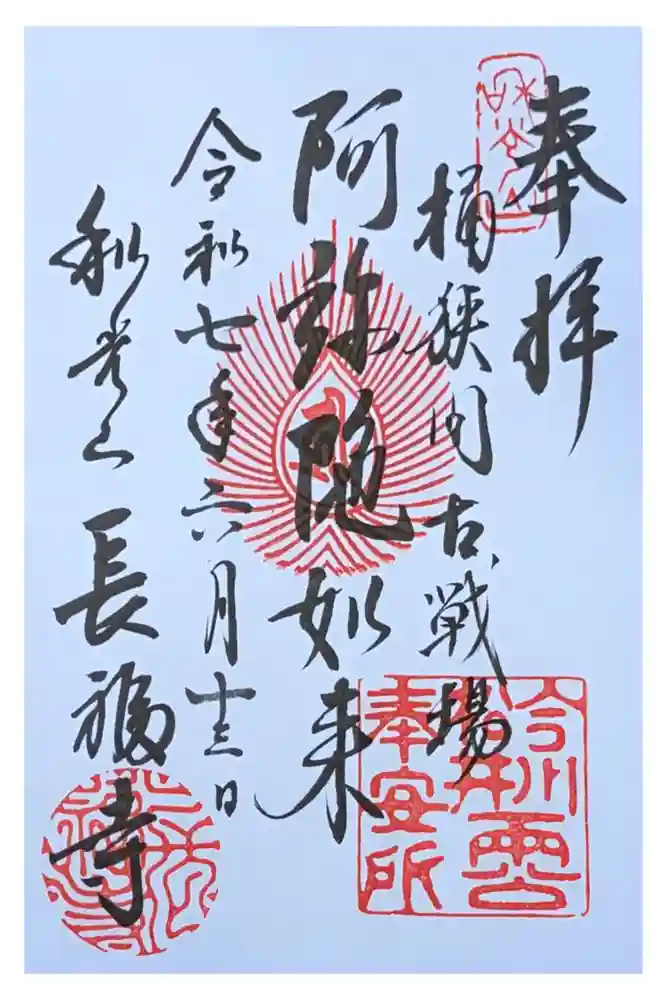 奉拝
桶狭間古戦場
阿弥随如来
令和七年六月十三日
和光山
長福寺
今川
奉安所